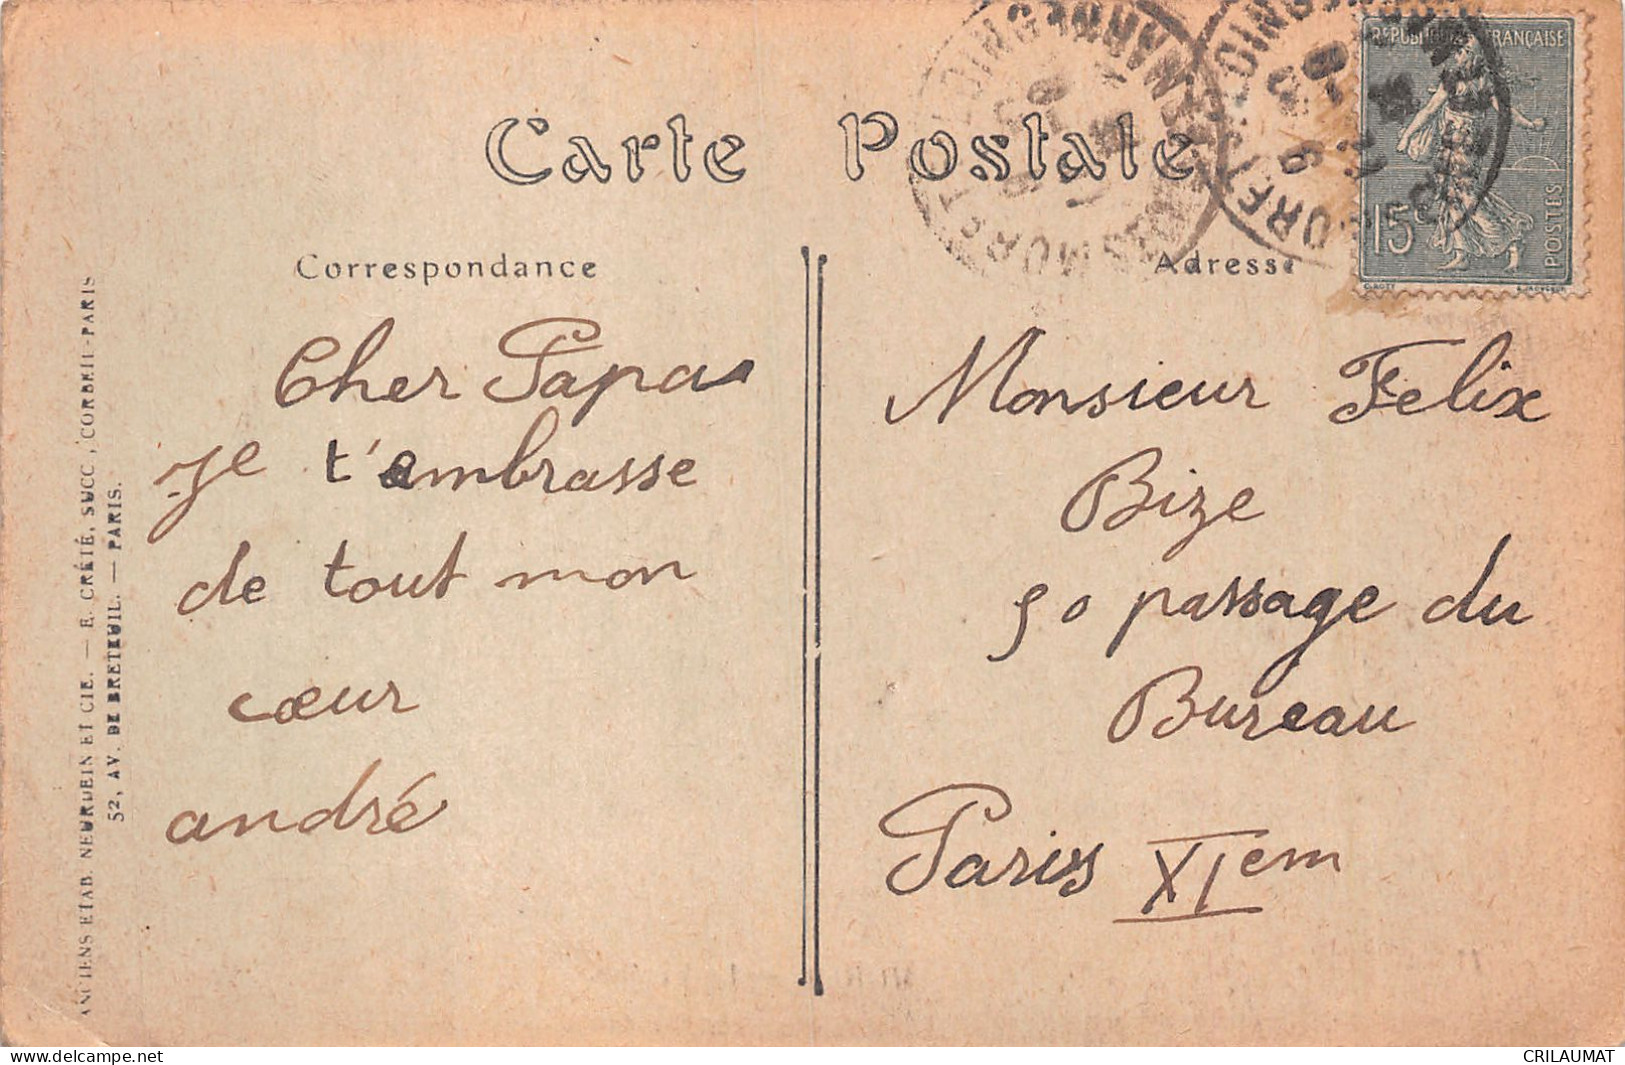 Carte Postale
Correspondance
Cher Papa
je t'embrasse
de tout mon
cœur
andré
Adresse
Monsieur Felix
Bize
50 passage du
Bureau
Paris XIem
RÉPUBLIQUE FRANÇAISE
15c
POSTES
ANCIENS ETAB. NEURDEIN ET CIE. — E. CRÉTÉ, SUCC., CORBEIL-PARIS
52, AV. DE BRETEUIL. — PARIS.
www.delcampe.net
CRILAUMAT